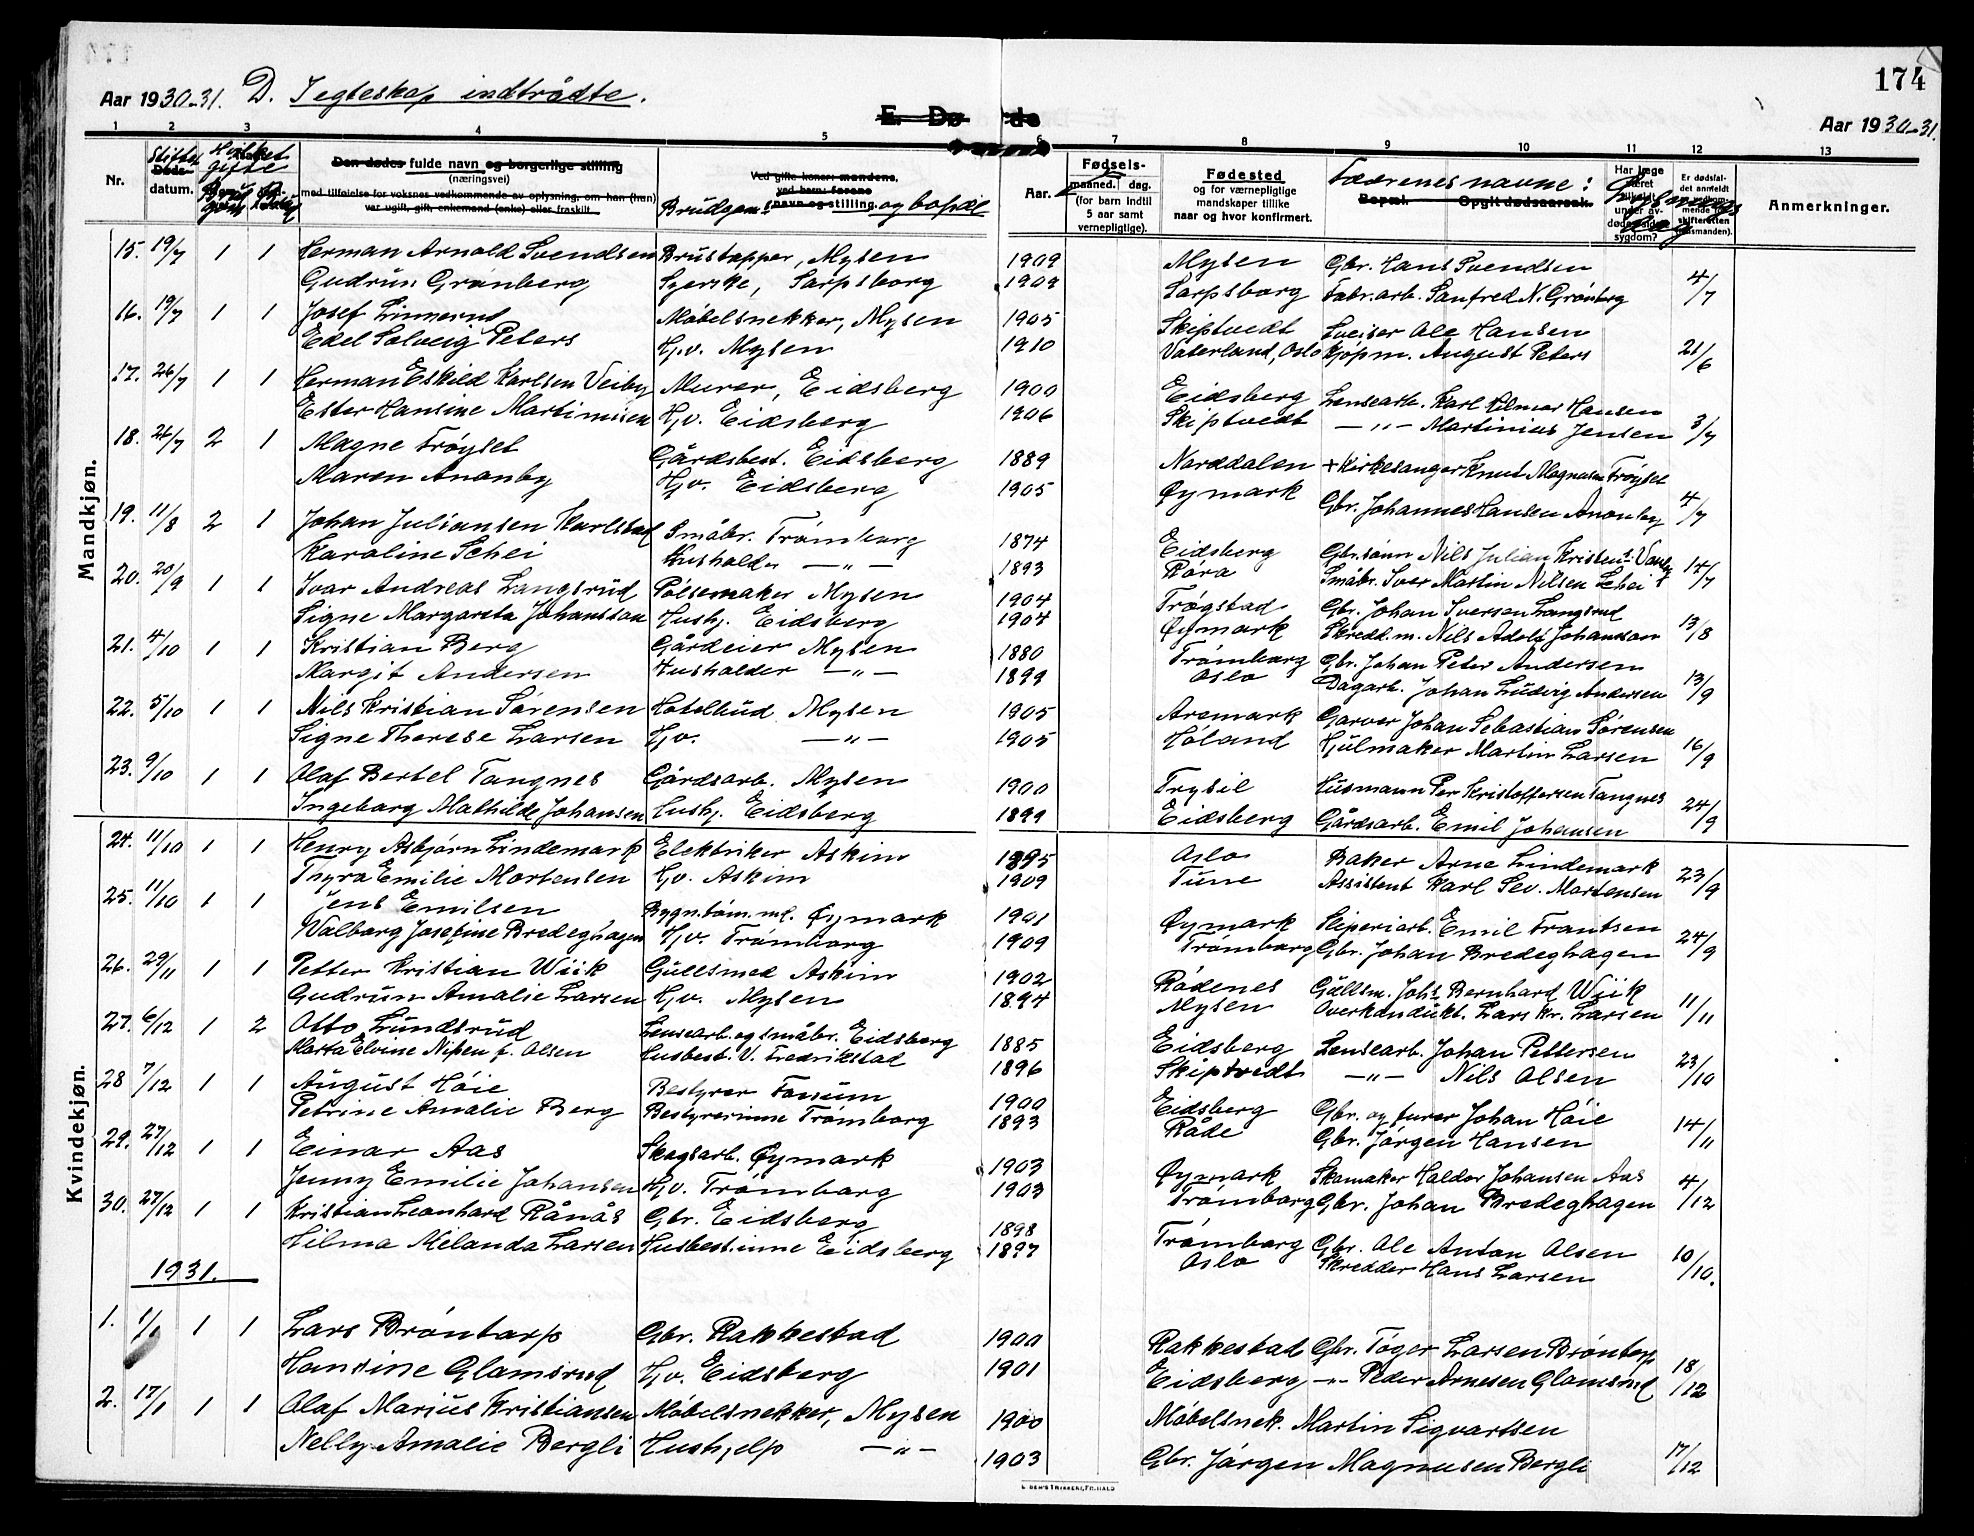 174
Aar 1930-31. D. Ꭻegteskap indtrådte.
E. Dø de
Aar 1930-31.
1 2 3 4 5 6 7 8 9 10 11 12 13
Nr. datum. Hvilket Gifte Den dødes fulde navn og borgerlige stilling (næringsvei) med tilføielse for voksnes vedkommende av oplysning, om han (hun) var ugift, gift, enkemand (enke) eller fraskilt.
Ved gifte koner: mandens, ved barn: farens navn og stilling. og bopæl Brudgom
Aar. Fødsels- maaned. dag. (for barn indtil 5 aar samt vernepligtige).
Fødested og for værnepligtige mandskaper tillike naar og hvor konfirmert.
Fædrenes navne: Bopæl. Opgit dødsaarsak.
Anmerkninger.
Mandkjøn.
15. 19/7 1 1 Herman Arnold Svendsen Brustapper, Mysen 1909 Mysen Gbr. Hans Svendsen
Gudrun Grønberg Syerske, Sarpsborg 1909 Sarpsborg Fabr.arb. Sanfred N. Grønberg 4/7
16. 19/7 1 1 Josef Linnerud Møbelsnekker, Mysen 1905 Skiptvedt Sveiser Ole Hansen
Edel Solveig Peters Hv. Mysen 1910 Vaterland, Oslo Kjøpm. August Peters 21/6
17. 26/7 1 1 Herman Eskild Karlsen Veiby Murer, Eidsberg 1900 Eidsberg Lensearb. Karl Hilmar Hansen
Ester Hansine Martinusen Hv. Eidsberg 1906 Skiptvedt —"— Martinius Jensen 3/7
18. 26/7 2 1 Magne Trøyset Gårdsbest. Eidsberg 1889 Norddalen + Kirkesanger Knut Magnusen Trøyset
Maren Ananby Hv. Eidsberg 1905 Øymark Gbr. Johannes Hansen Anonby 4/7
19. 11/8 2 1 Johan Juliansen Karlstad Småbr. Trømborg 1874 Eidsberg Gbr.sønn Nils Julian Kristens.
Karoline Schei Husholder —"— 1893 Råra Småbr. Iver Martin Nilsen Schei 14/7
20. 20/9 1 1 Ivar Andreas Langsrud Pølsemaker Mysen 1904 Trøgstad Gbr. Johan Iversen Langsrud
Signe Margareta Johansson Hushj. Eidsberg 1904 Øymark Skredd.m. Nils Adolf Johansson 13/8
21. 4/10 1 1 Kristian Berg Gårdeier Mysen 1880 Trømborg Gbr. Johan Peter Andersen
Margit Andersen Husholder —"— 1899 Oslo Dagarb. Johan Ludvig Andersen 13/9
22. 5/10 1 1 Nils Kristian Sørensen Hotelbud Mysen 1905 Aremark Garver Johan Sebastian Sørensen
Signe Therese Larsen Hv. —"— 1905 Høland Hjulmaker Martin Larsen 16/9
23. 9/10 1 1 Olaf Bertel Tangnes Gårdsarb. Mysen 1900 Trysil Husmann Per Kristoffersen Tangnes
Ingeborg Mathilde Johansen Hushj. Eidsberg 1899 Eidsberg Gårdsarb. Emil Johansen 24/9
Kvindekjøn.
24. 11/10 1 1 Henry Asbjørn Lindemark Elektriker Askim 1895 Oslo Baker Arne Lindemark
Thyra Emilie Mortensen Hv. Askim 1909 Tune Assistent Karl Sev. Mortensen 23/9
25. 11/10 1 1 Jens Emilsen Bygn.tøm.m. Øymark 1901 Øymark Sliperiarb. Emil Frantsen
Valborg Josefine Bredeghagen Hv. Trømborg 1909 Trømborg Gbr. Johan Bredeghagen 24/9
26. 29/11 1 1 Petter Kristian Wiik Gullsmed Askim 1902 Rødenes Gullsm. Johs Bernhard Wiik
Gudrun Amalie Larsen Hv. Mysen 1894 Mysen Overkondukt. Lars Kr. Larsen 11/11
27. 6/12 1 2 Otto Lundsrud Lensearb. og småbr. Eidsberg 1885 Eidsberg Lensearb. Johan Pettersen
Marta Elvine Nipen f. Olsen Husbest. V. Fredrikstad 1896 Skiptvedt —"— Nils Olsen 23/10
28 7/12 1 1 August Høie Bestyrer Tomum 1900 Eidsberg Gbr. og furer Johan Høie
Petrine Amalie Berg Bestyrerinne Trømborg 1893 Råde Gbr. Jørgen Hansen 14/11
29. 27/12 1 1 Einar Aas Skogsarb. Øymark 1903 Øymark Skomaker Haldor Johansen Aas
Jenny Emilie Johansen Hv. Trømborg 1903 Trømborg Gbr. Johan Bredeghagen 4/12
30. 27/12 1 1 Kristian Leonhard Rånås Gbr. Eidsberg 1898 Trømborg Gbr. Ole Anton Olsen
Hilma Melanda Larsen Husbest.inne Eidsberg 1897 Oslo Skredder Hans Larsen 10/10.
1931.
1. 1/1 1 1 Lars Brøntorp Gbr. Rakkestad 1900 Rakkestad Gbr. Tøger Larsen Brøntorp
Hansine Glamsrud Hv. Eidsberg 1901 Eidsberg —"— Peder Arnesen Glamsrud 18/12
2. 17/1 1 1 Olaf Marius Kristiansen Møbelsnekker, Mysen 1900 Møbelsnek. Martin Sigvartsen
Nelly Amalie Bergli Hushjelp —"— 1903 Gbr. Jørgen Magnusen Bergli 17/12